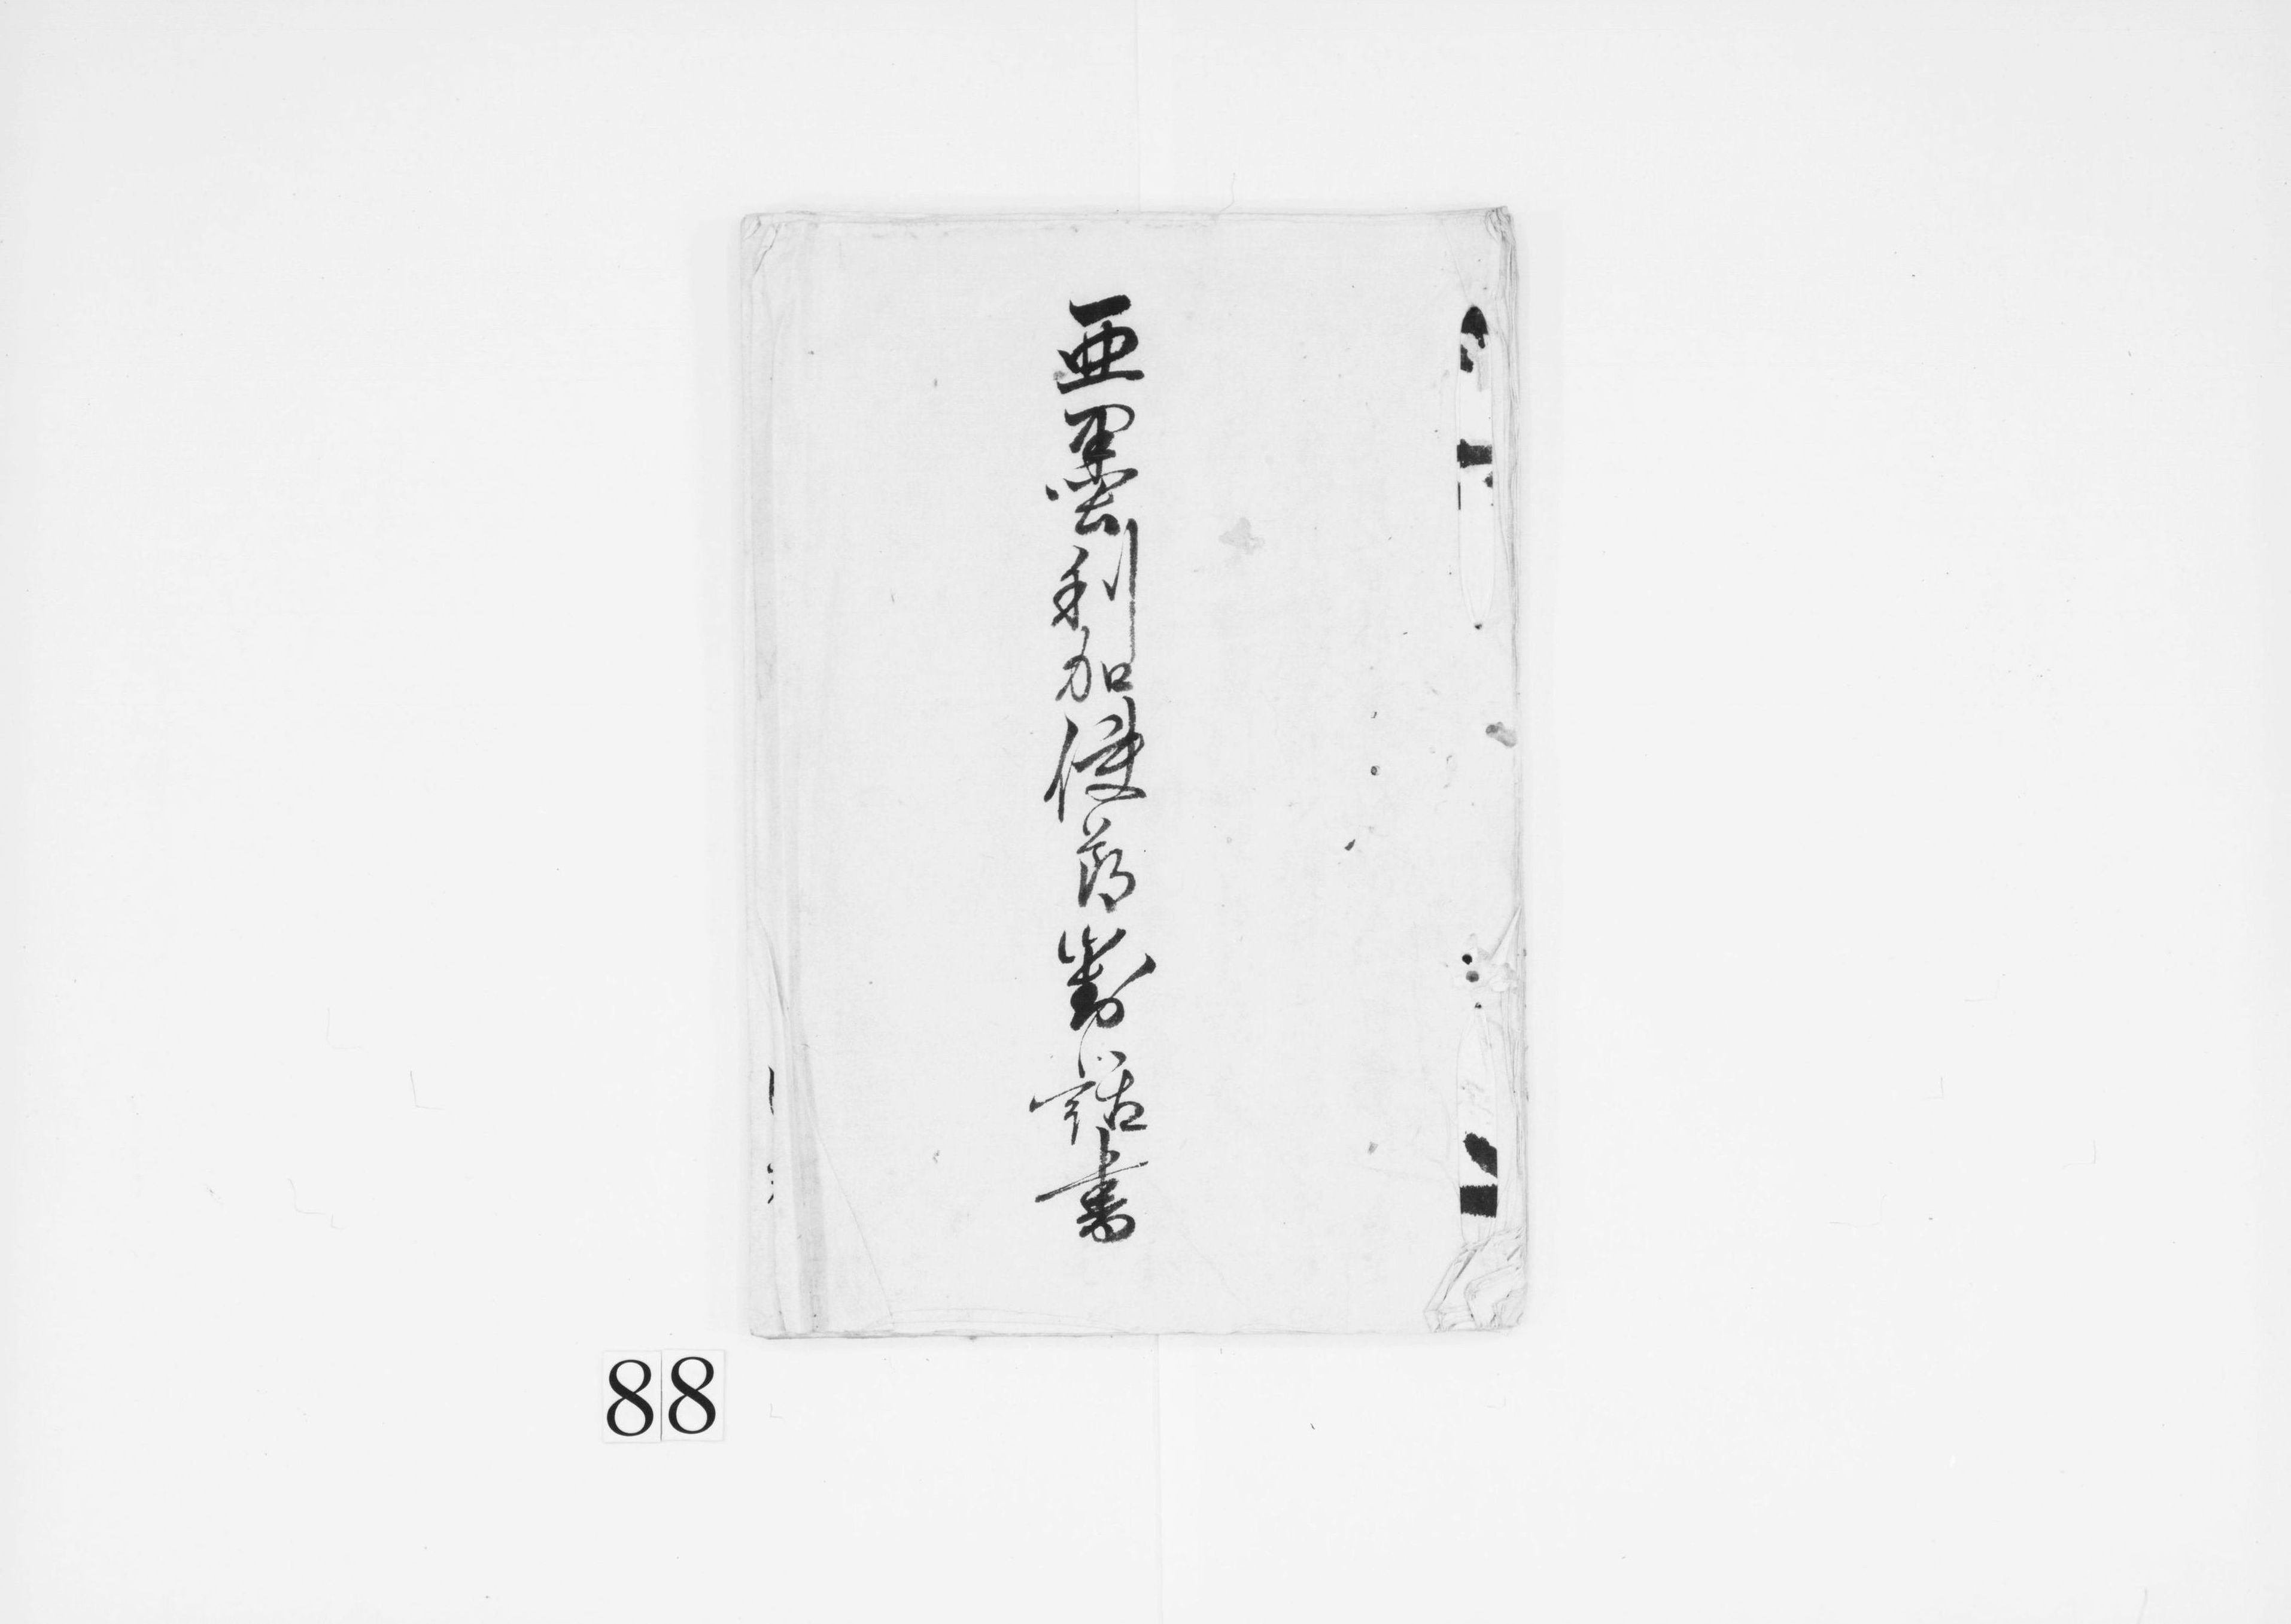 亜墨利加使節對話書
88